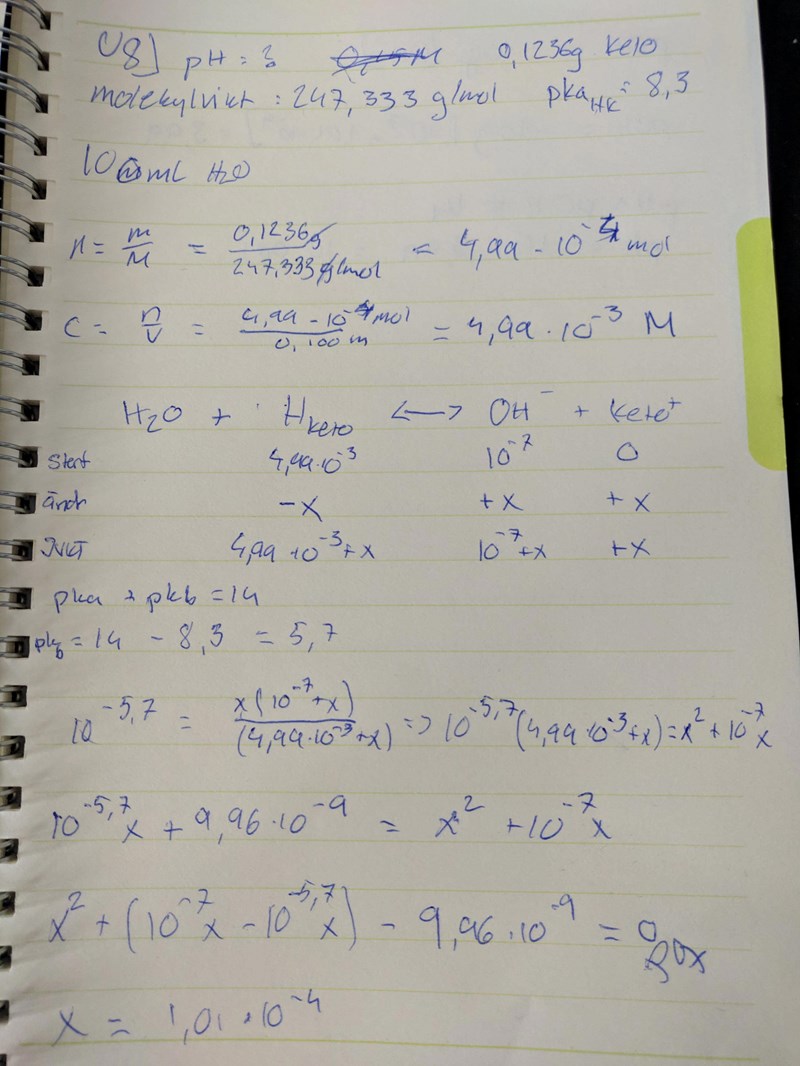 U8] pH = 3 0,1236g keto
molekylvikt : 247,333 g/mol pka HK = 8,3
100 ml H2O
n = m/M = 0,1236g / 247,333 g/mol = 4,99 - 10^-4 mol
C = n/V = 4,99 - 10^-4 mol / 0,100 m = 4,99 · 10^-3 M
H2O + Hketo <-> OH^- + keto^+
Start 4,99·10^-3 10^-7 0
Ändr -x +x +x
JVKT 4,99·10^-3+x 10^-7+x +x
pka + pkb = 14
pkb = 14 - 8,3 = 5,7
10^-5,7 = x(10^-7+x) / (4,99·10^-3+x) => 10^-5,7(4,99·10^-3+x) = x^2 + 10^-7x
10^-5,7x + 9,96·10^-9 = x^2 + 10^-7x
x^2 + (10^-7x - 10^-5,7x) - 9,96·10^-9 = 0
x = 1,01·10^-4